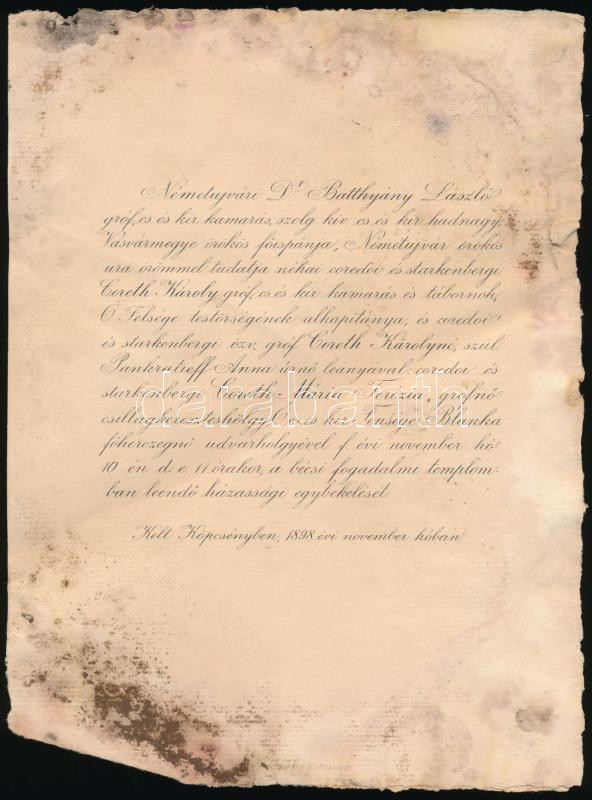 Németujvári Dr Batthyány László
gróf, cs és kir kamarás, szolg kiv cs és kir hadnagy,
Vasvármegye örökös főispánja, Németújvár örökös
ura örömmel tudatja néhai coredoi és starkenbergi
Coreth Károly gróf, cs és kir kamarás és tábornok,
Ő Felsége testőrségének alkapitánya, és coredoi
és starkenbergi özv. gróf Coreth Károlyné, szül.
Pankratieff Anna úrnő leányával: coredoi és
starkenbergi Coreth Mária Terézia grófnő
csillagkereszteshölgy, Ő cs és kir Fensége Blanka
főherczegnő udvarhölgyével f. évi november hó
10 én d. e. 11 órakor, a bécsi fogadalmi templom-
ban leendő házassági egybekelését.
Kelt Köpcsényben, 1898. évi november hóban.
darabanth